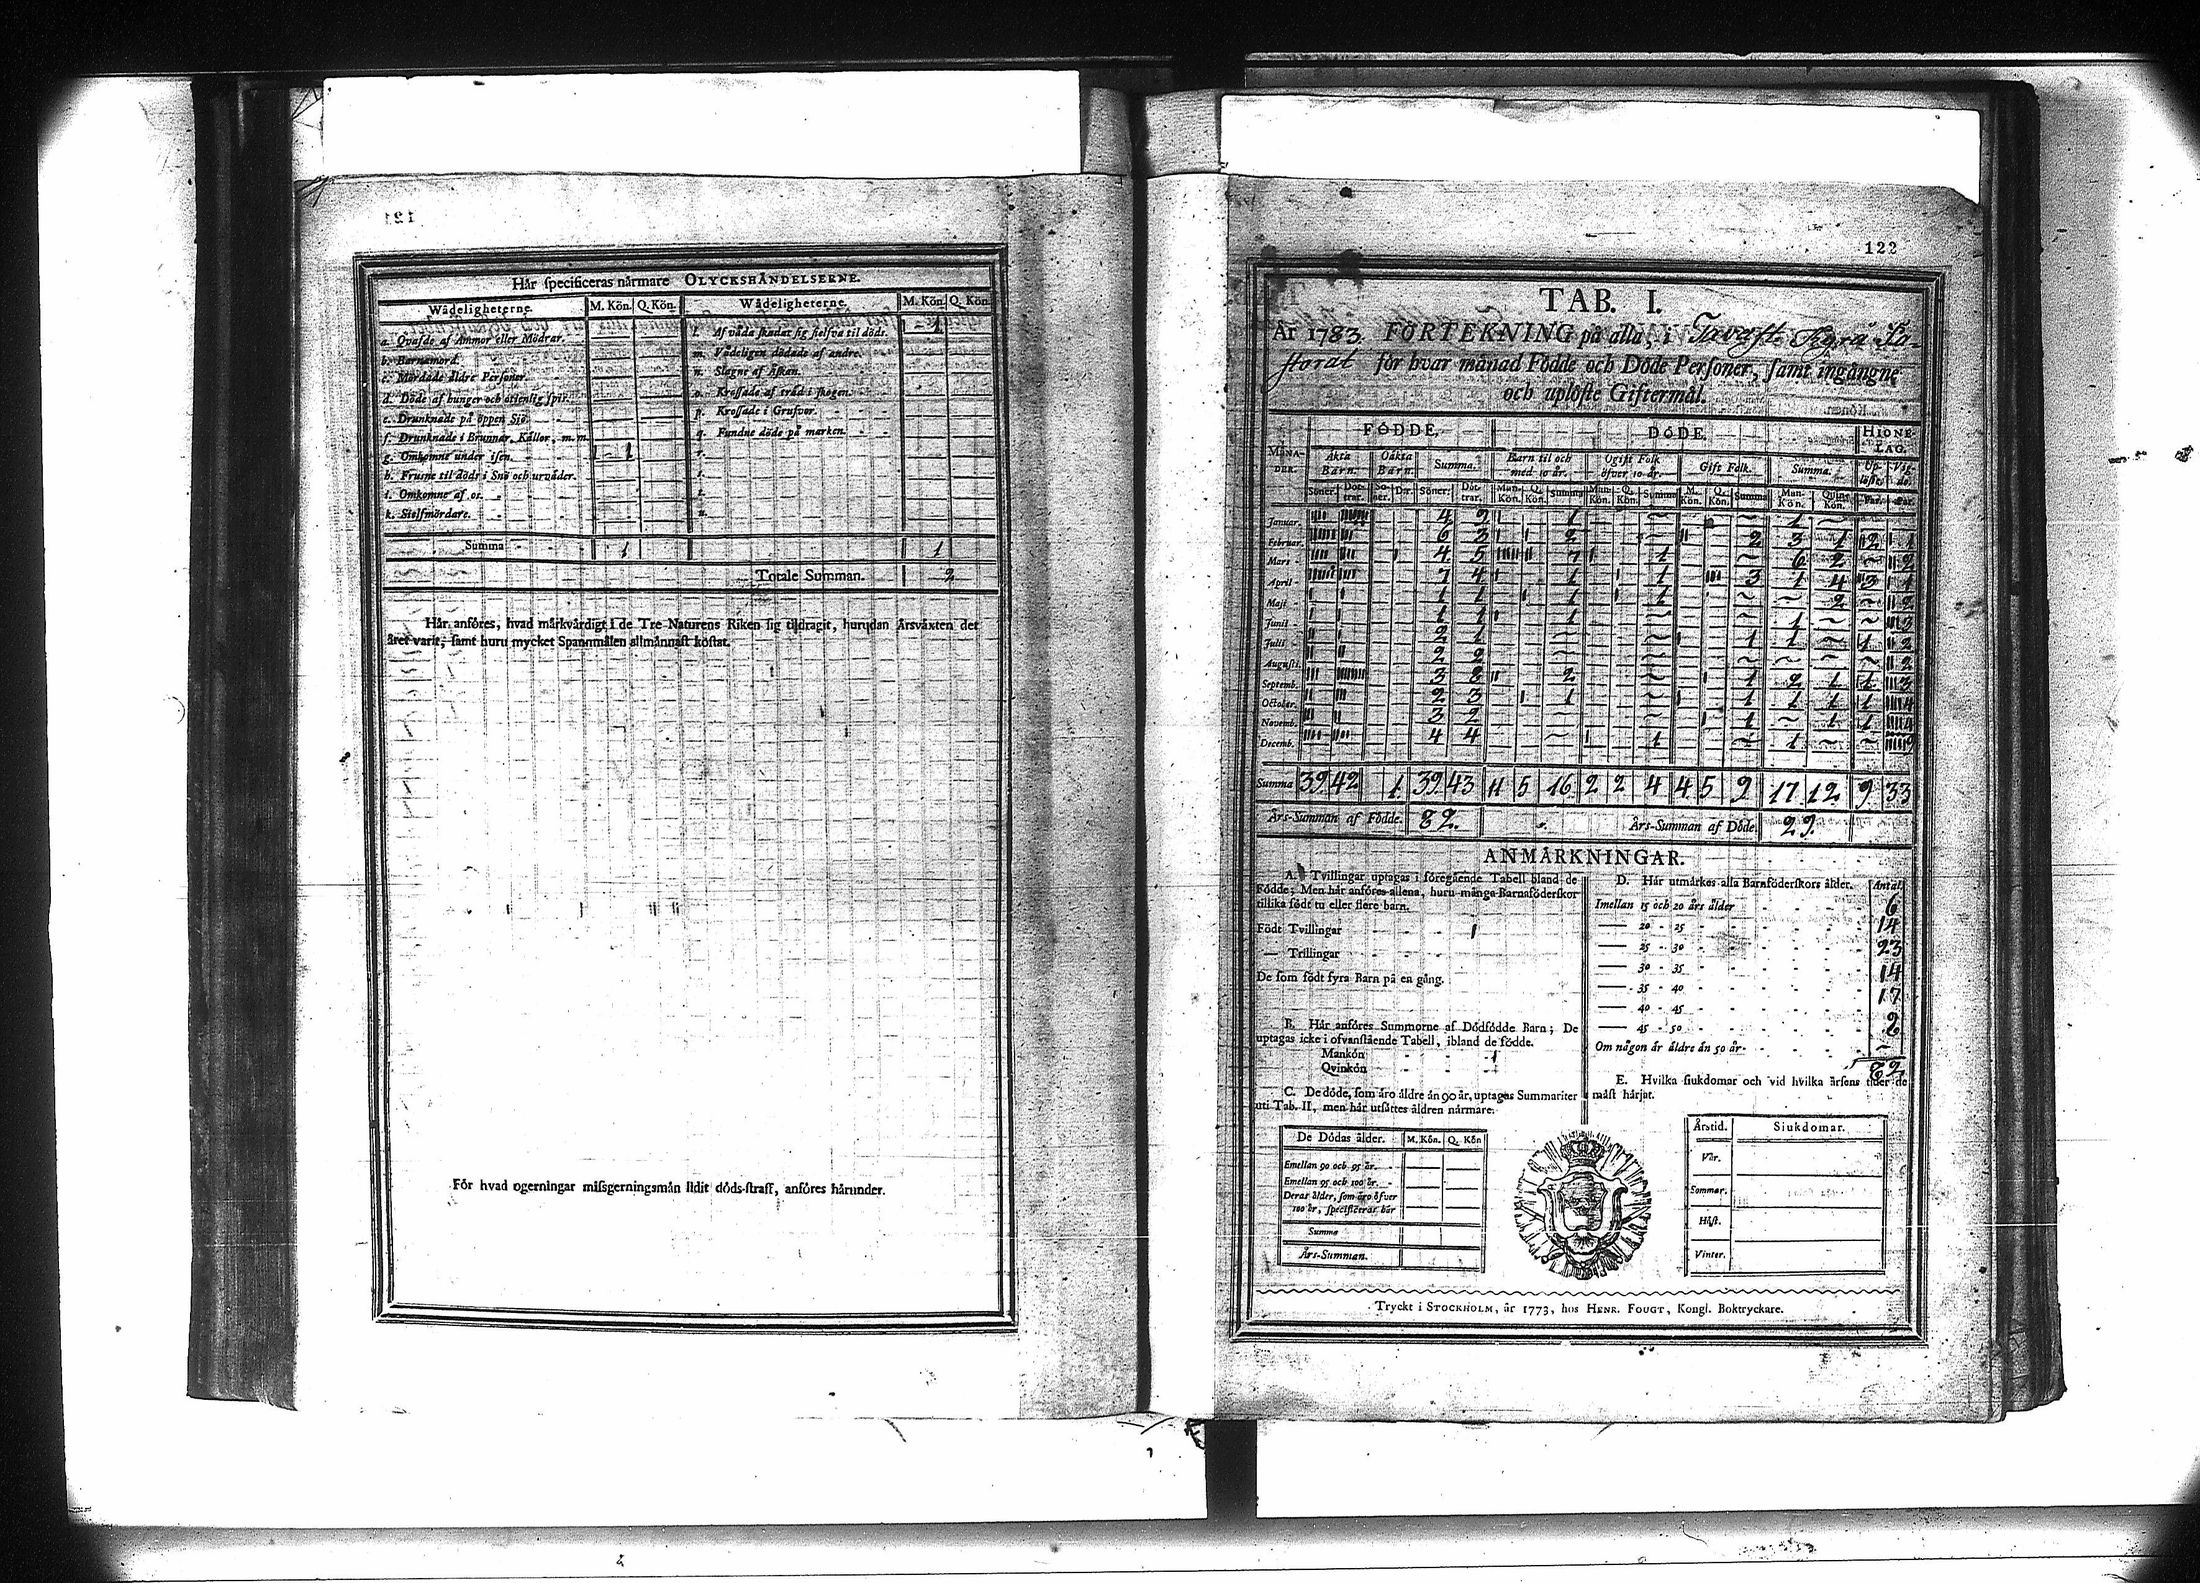 121
Hår specificeras nårmare OLYCKSHÅNDELSERNE.
Wådeligheterne. M. Kön. Q. Kön. Wådeligheterne. M. Kön. Q. Kön.
a. Qvafde af Ammor eller Mödrar. l. Af våda skadat sig sielfva til döds. 1
b. Barnamord. m. Vådeligen dödade af andre.
c. Mördade åldre Personer. n. Slagne af Åskan.
d. Döde af hunger och otienlig spis. o. Krossade af tråd i skogen.
e. Drunknade på öppen Siö. p. Krossade i Grufvor.
f. Drunknade i Brunnar, Kållor, m. m. q. Fundne döde på marken.
g. Omkomne under isen. 1 r.
h. Frusne til döds i Snö och urvåder. s.
i. Omkomne af os. t.
k. Sielfmördare. u.
Summa 1 1
Totale Summan. 2
Hår anföres, hvad mårkvårdigt i de Tre Naturens Riken sig tildragit, hurudan Årsvåxten det
året varit, samt huru mycket Spannmålen allmånnast kostat.
För hvad ogerningar missgerningsmån lidit döds-straff, anföres hårunder.
122
TAB. I.
År 1783. FÖRTEKNING på alla, i Tavast Kyrö Pa-
storat för hvar månad Födde och Döde Personer, samt ingångne
och uplöste Giftermål.
FÖDDE. DÖDE. HIONE-LAG.
MÅNA-DER. Åkta Barn. Oåkta Barn. Summa. Barn til och med 10 år. Ogift Folk öfver 10 år. Gift Folk. Summa. Up-löste. Vig-de.
Söner. Döt-trar. Sö-ner. Dr. Söner. Döt-trar. Man-Kön. Q. Kön. Summa Man-Kön. Q. Kön. Summa M. Kön. Q. Kön. Summa Man-Kön. Qvin-Kön. Par. Par.
Januar. 4 9 1 1
Februar. 6 3 2 2 3 1 2 1
Mars 4 5 7 1 6 2 2
April 7 4 1 1 3 1 4 3 1
Maji 1 1 1 1 2 2
Junii 1 1 1 1 3
Julii 2 1 1 1 1 2
Augusti. 2 2 2
Septemb. 3 8 2 1 2 1 1 3
October. 2 3 1 1 1 1 1 4
Novemb. 3 2 1 1 1 4
Decemb. 4 4 1 1 9
Summa 39 42 1. 39 43 11 5 16 2 2 4 4 5 9 17 12 9 33
Års-Summan af Födde. 82. Års-Summan af Döde. 29.
ANMÅRKNINGAR.
A. Tvillingar uptagas i föregående Tabell bland de
Födde; Men hår anföres allena, huru många Barnaföderskor
tillika födt tu eller flere barn.
Födt Tvillingar 1
— Trillingar
De som födt fyra Barn på en gång.
B. Hår anföres Summorne af Dödfödde Barn; De
uptagas icke i ofvanstående Tabell, ibland de födde.
Mankön 1
Qvinkön
C. De döde, som åro åldre ån 90 år, uptagas Summariter
uti Tab. II, men hår utsåttes åldren nårmare.
De Dödas ålder. M. Kön. Q. Kön
Emellan 90 och 95 år.
Emellan 95 och 100 år.
Deras ålder, som åro öfver
100 år, specificeras hår
Summa
Års-Summan.
D. Hår utmårkes alla Barnföderskors ålder. Antal.
Imellan 15 och 20 års ålder 6
— 20 - 25 14
— 25 - 30 23
— 30 - 35 14
— 35 - 40 17
— 40 - 45
— 45 - 50 2
Om någon år åldre ån 50 år
E. Hvilka siukdomar och vid hvilka årsens tider de
måst hårjat.
Årstid. Siukdomar.
Vår.
Sommar.
Höst.
Vinter.
Tryckt i STOCKHOLM, år 1773, hos HENR. FOUGT, Kongl. Boktryckare.